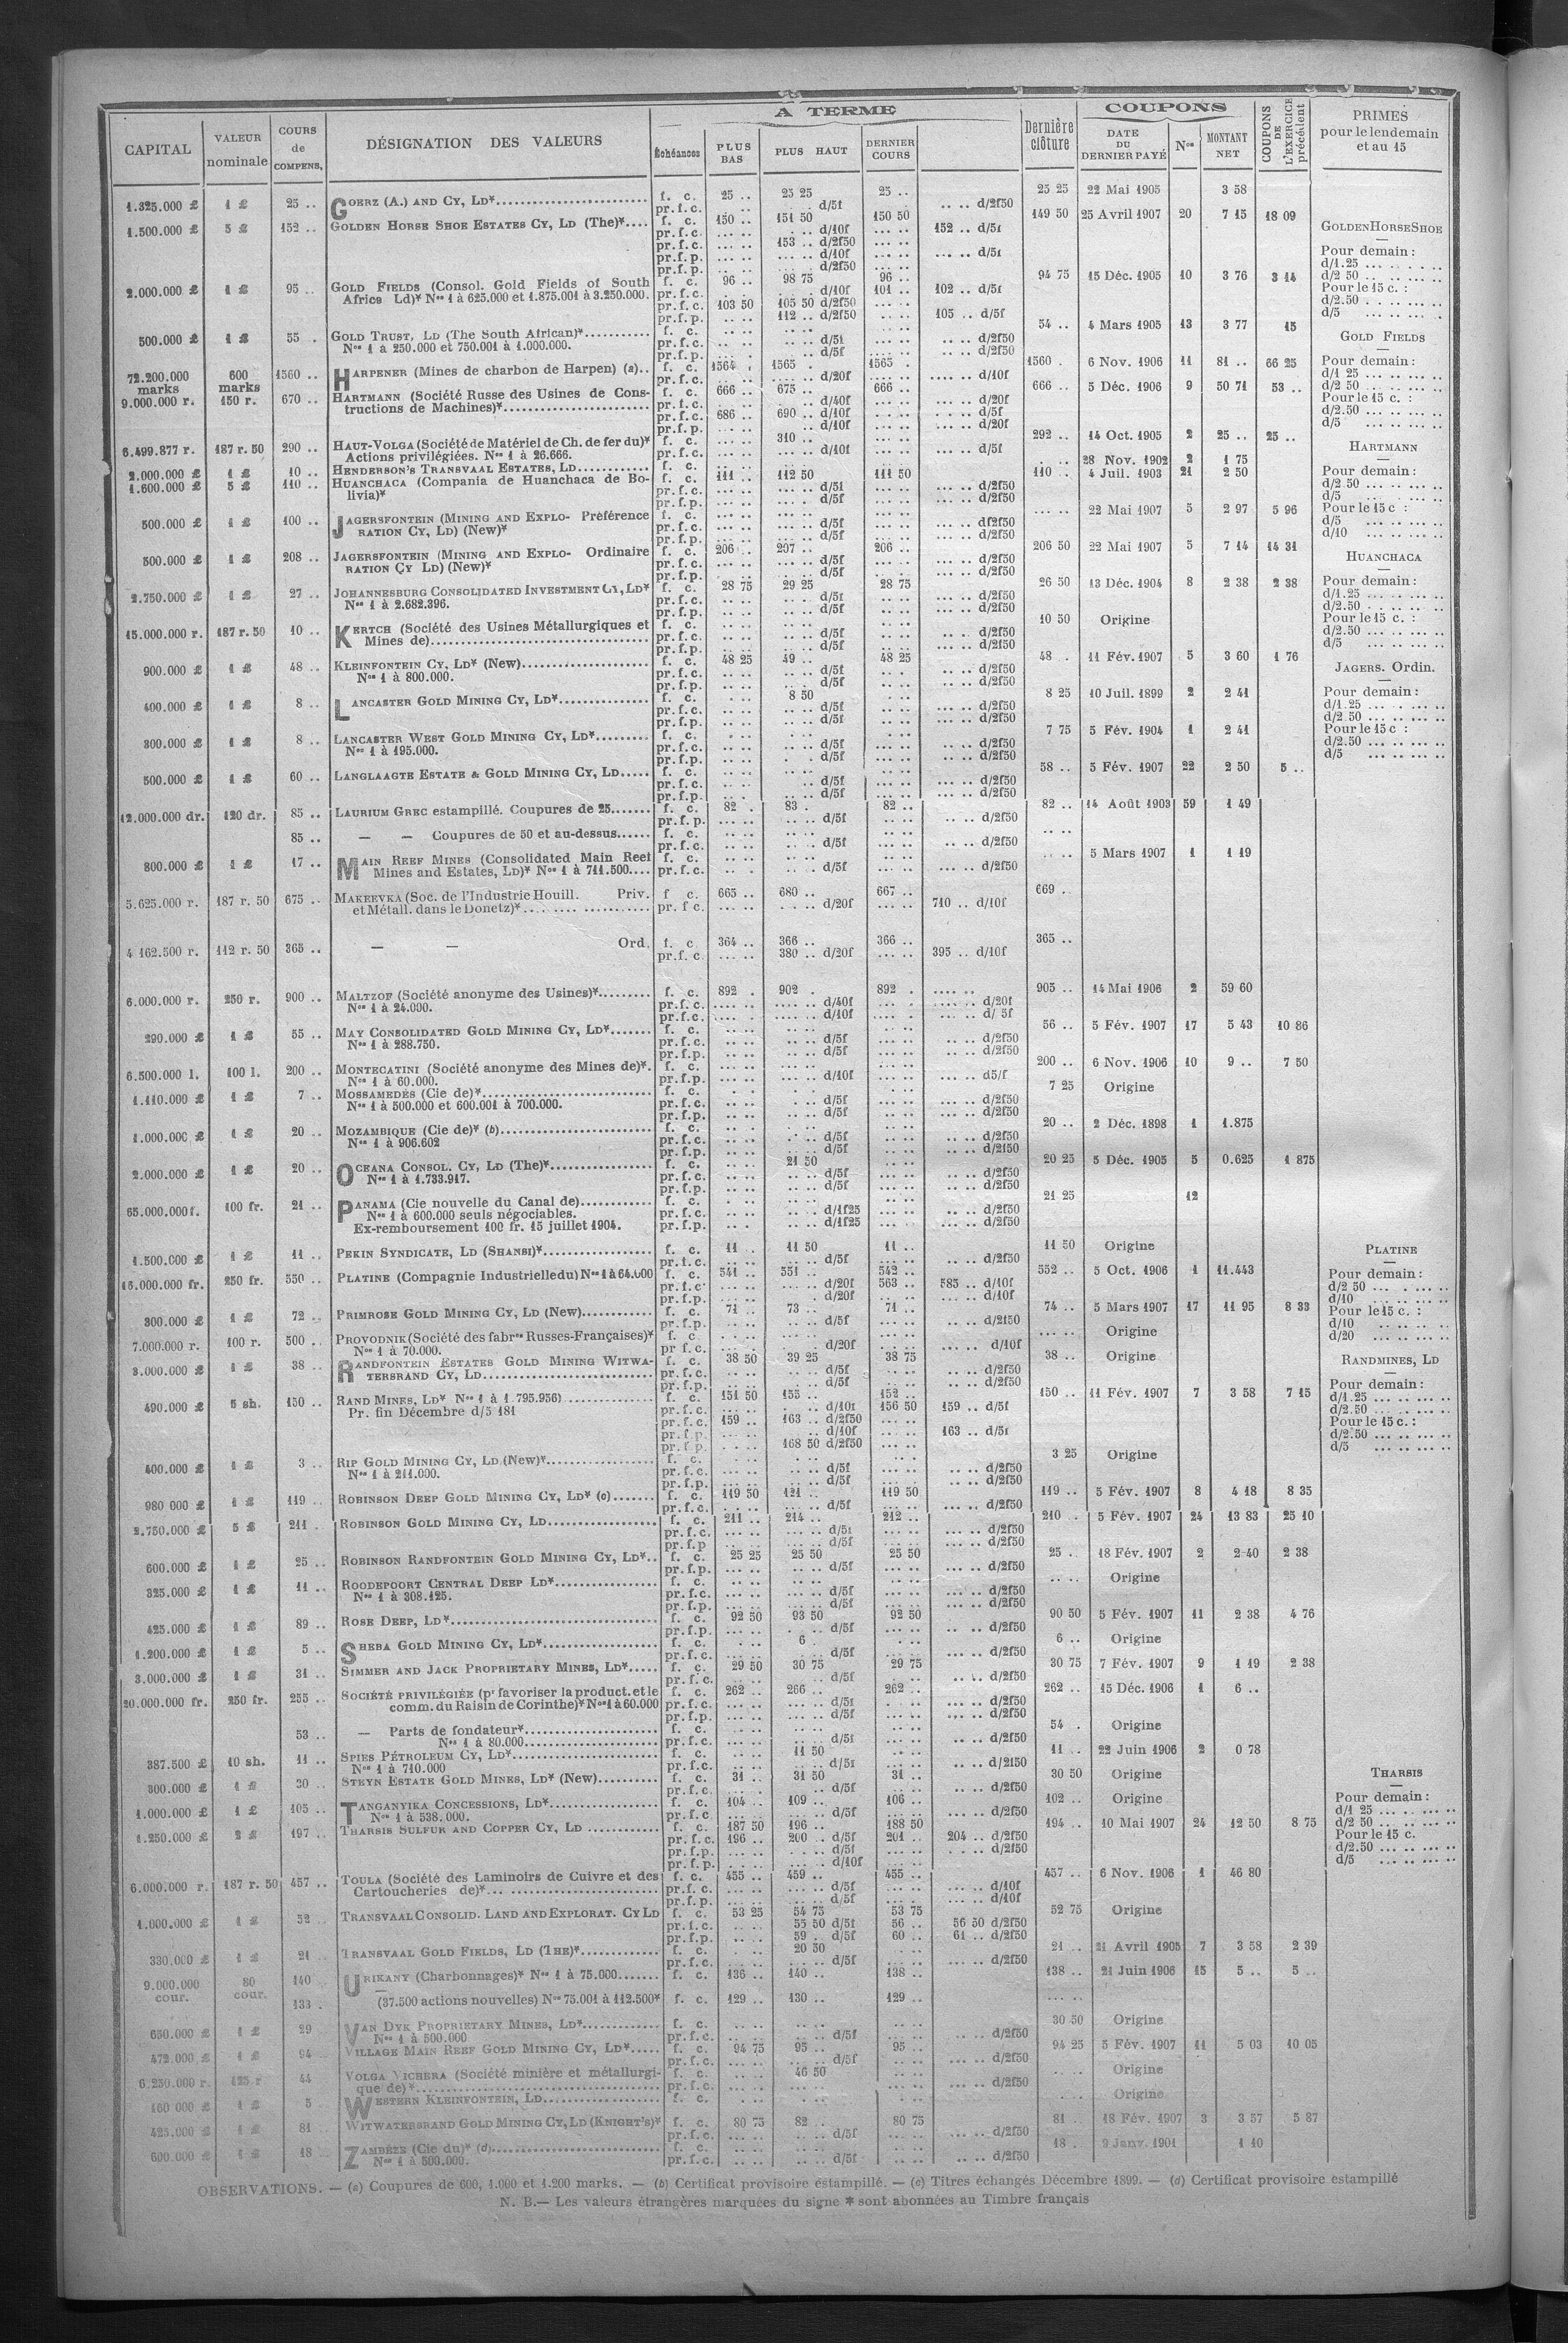 A TERME
COUPONS
CAPITAL VALEUR nominale COURS de COMPENS. DÉSIGNATION DES VALEURS Échéances PLUS BAS PLUS HAUT DERNIER COURS Dernière clôture DATE DU DERNIER PAYÉ Nos MONTANT NET COUPONS DE L'EXERCICE précédent PRIMES pour le lendemain et au 15
1.325.000 £ 1 £ 25 .. GOERZ (A.) AND CY, LD* f. c. 25 .. 25 25 25 .. 25 25 22 Mai 1905 3 58
pr.f.c. d/5f d/2f50
1.500.000 £ 5 £ 152 .. GOLDEN HORSE SHOE ESTATES CY, LD (The)* f. c. 150 .. 151 50 150 50 149 50 25 Avril 1907 20 7 15 18 09
pr.f.c. d/10f 152 .. d/5f
pr.f.c. 153 .. d/2f50
pr.f.p. d/10f d/5f
pr.f.p. d/2f50
2.000.000 £ 1 £ 95 .. GOLD FIELDS (Consol. Gold Fields of South f. c. 96 .. 98 75 96 .. 94 75 15 Déc. 1905 10 3 76 3 14
Africa Ld)* Nos 1 à 625.000 et 1.875.001 à 3.250.000. pr.f.c. d/10f 101 .. 102 .. d/5f
pr.f.c. 103 50 105 50 d/2f50
pr.f.p. 112 .. d/2f50 105 .. d/5f
500.000 £ 1 £ 55 .. GOLD TRUST, LD (The South African)* f. c. 54 .. 4 Mars 1905 13 3 77 15
Nos 1 à 250.000 et 750.001 à 1.000.000. pr.f.c. d/5f d/2f50
pr.f.p. d/5f d/2f50
72.200.000 marks 600 marks 1560 .. HARPENER (Mines de charbon de Harpen) (a).. f. c. 1564 . 1565 . 1565 . 1560 . 6 Nov. 1906 11 81 .. 66 25
pr.f.c. d/20f d/10f
9.000.000 r. 150 r. 670 .. HARTMANN (Société Russe des Usines de Cons- f. c. 666 .. 675 .. 666 .. 666 .. 5 Déc. 1906 9 50 71 53 ..
tructions de Machines)* pr.f.c. d/40f d/20f
pr.f.c. 686 .. 690 .. d/10f d/5f
pr.f.p. d/10f d/20f
6.499.877 r. 187 r. 50 290 .. HAUT-VOLGA (Société de Matériel de Ch. de fer du)* f. c. 310 .. 292 .. 14 Oct. 1905 2 25 .. 25 ..
Actions privilégiées. Nos 1 à 26.666. pr.f.c. d/10f d/5f
2.000.000 £ 1 £ 10 .. HENDERSON'S TRANSVAAL ESTATES, LD f. c. 28 Nov. 1902 2 1 75
1.600.000 £ 5 £ 110 .. HUANCHACA (Compania de Huanchaca de Bo- f. c. 111 .. 112 50 111 50 110 .. 4 Juil. 1903 21 2 50
livia)* pr.f.c. d/5f d/2f50
pr.f.p. d/5f d/2f50
500.000 £ 1 £ 100 .. JAGERSFONTEIN (MINING AND EXPLO- Préférence f. c. 22 Mai 1907 5 2 97 5 96
RATION CY, LD) (New)* pr.f.c. d/5f d/2f50
pr.f.p. d/5f d/2f50
500.000 £ 1 £ 208 .. JAGERSFONTEIN (MINING AND EXPLO- Ordinaire f. c. 206 .. 207 .. 206 .. 206 50 22 Mai 1907 5 7 14 14 31
RATION CY LD) (New)* pr.f.c. d/5f d/2f50
pr.f.p. d/5f d/2f50
2.750.000 £ 1 £ 27 .. JOHANNESBURG CONSOLIDATED INVESTMENT Cy, LD* f. c. 28 75 29 25 28 75 26 50 13 Déc. 1904 8 2 38 2 38
Nos 1 à 2.682.396. pr.f.c. d/5f d/2f50
pr.f.p. d/5f d/2f50
15.000.000 r. 187 r. 50 10 .. KERTCH (Société des Usines Métallurgiques et f. c. 10 50 Origine
Mines de) pr.f.c. d/5f d/2f50
pr.f.p. d/5f d/2f50
900.000 £ 1 £ 48 .. KLEINFONTEIN CY, LD* (New) f. c. 48 25 49 .. 48 25 48 . 11 Fév. 1907 5 3 60 1 76
Nos 1 à 800.000. pr.f.c. d/5f d/2f50
pr.f.p. d/5f d/2f50
400.000 £ 1 £ 8 .. LANCASTER GOLD MINING CY, LD* f. c. 8 50 8 25 10 Juil. 1899 2 2 41
pr.f.c. d/5f d/2f50
pr.f.p. d/5f d/2f50
300.000 £ 1 £ 8 .. LANCASTER WEST GOLD MINING CY, LD* f. c. 7 75 5 Fév. 1904 1 2 41
Nos 1 à 195.000. pr.f.c. d/5f d/2f50
pr.f.p. d/5f d/2f50
500.000 £ 1 £ 60 .. LANGLAAGTE ESTATE & GOLD MINING CY, LD f. c. 58 .. 5 Fév. 1907 22 2 50 5 ..
pr.f.c. d/5f d/2f50
pr.f.p. d/5f d/2f50
12.000.000 dr. 120 dr. 85 .. LAURIUM GREC estampillé. Coupures de 25 f. c. 82 . 83 . 82 .. 82 .. 14 Août 1903 59 1 49
pr.f.p. d/5f d/2f50
85 .. — — Coupures de 50 et au-dessus f. c.
pr.f.c. d/5f d/2f50
800.000 £ 1 £ 17 .. MAIN REEF MINES (Consolidated Main Reef f. c. 5 Mars 1907 1 1 19
Mines and Estates, LD)* Nos 1 à 711.500 pr.f.c. d/5f d/2f50
5.625.000 r. 187 r. 50 675 .. MAKEEVKA (Soc. de l'Industrie Houill. Priv. f. c. 665 .. 680 .. 667 .. 669 .
et Métall. dans le Donetz)* pr.f.c. d/20f 710 .. d/10f
4 162.500 r. 112 r. 50 365 .. — — Ord. f. c. 364 .. 366 .. 366 .. 365 ..
pr.f.c. 380 .. d/20f 395 .. d/10f
6.000.000 r. 250 r. 900 .. MALTZOF (Société anonyme des Usines)* f. c. 892 . 902 . 892 . 905 .. 14 Mai 1906 2 59 60
Nos 1 à 24.000. pr.f.c. d/40f d/20f
pr.f.c. d/10f d/ 5f
290.000 £ 1 £ 55 .. MAY CONSOLIDATED GOLD MINING CY, LD* f. c. 56 .. 5 Fév. 1907 17 5 43 10 86
Nos 1 à 288.750. pr.f.c. d/5f d/2f50
pr.f.p. d/5f d/2f50
6.500.000 l. 100 l. 200 .. MONTECATINI (Société anonyme des Mines de)*. f. c. 200 .. 6 Nov. 1906 10 9 .. 7 50
Nos 1 à 60.000. pr.f.p. d/10f d5/f
1.110.000 £ 1 £ 7 .. MOSSAMEDÈS (Cie de)* f. c. 7 25 Origine
Nos 1 à 500.000 et 600.001 à 700.000. pr.f.c. d/5f d/2f50
pr.f.p. d/5f d/2f50
1.000.000 £ 1 £ 20 .. MOZAMBIQUE (Cie de)* (b) f. c. 20 .. 2 Déc. 1898 1 1.875
Nos 1 à 906.602 pr.f.c. d/5f d/2f50
pr.f.p. d/5f d/2f50
2.000.000 £ 1 £ 20 .. OCEANA CONSOL. CY, LD (The)* f. c. 21 50 20 25 5 Déc. 1905 5 0.625 1 875
Nos 1 à 1.733.917. pr.f.c. d/5f d/2f50
pr.f.p. d/5f d/2f50
65.000.000 f. 100 fr. 21 .. PANAMA (Cie nouvelle du Canal de) f. c. 21 25 12
Nos 1 à 600.000 seuls négociables. pr.f.c. d/1f25 d/2f50
Ex-remboursement 100 fr. 15 juillet 1904. pr.f.p. d/1f25 d/2f50
1.500.000 £ 1 £ 11 .. PEKIN SYNDICATE, LD (SHANSI)* f. c. 11 . 11 50 11 .. 11 50 Origine
pr.f.c. d/5f d/2f50
16.000.000 fr. 250 fr. 550 .. PLATINE (Compagnie Industrielle du) Nos 1 à 64.000 f. c. 541 .. 551 .. 542 .. 552 .. 5 Oct. 1906 1 11.443
pr.f.c. d/20f 563 .. 585 .. d/10f
pr.f.p. d/20f d/10f
300.000 £ 1 £ 72 .. PRIMROSE GOLD MINING CY, LD (New) f. c. 71 . 73 .. 71 .. 74 .. 5 Mars 1907 17 11 95 8 33
pr.f.p. d/5f d/2f50
7.000.000 r. 100 r. 500 .. PROVODNIK (Société des fabres Russes-Françaises)* f. c. Origine
Nos 1 à 70.000. pr.f.c. d/20f d/10f
3.000.000 £ 1 £ 38 .. RANDFONTEIN ESTATES GOLD MINING WITWA- f. c. 38 50 39 25 38 75 38 .. Origine
TERSRAND CY, LD pr.f.c. d/5f d/2f50
pr.f.p. d/5f d/2f50
490.000 £ 5 sh. 150 .. RAND MINES, LD* Nos 1 à 1.795.956) f. c. 151 50 155 .. 152 .. 150 .. 11 Fév. 1907 7 3 58 7 15
Pr. fin Décembre d/5 181 pr.f.c. d/10f 156 50 159 .. d/5f
pr.f.c. 159 .. 163 .. d/2f50
pr.f.p. d/10f 163 .. d/5f
pr.f.p. 168 50 d/2f50
400.000 £ 1 £ 3 .. RIP GOLD MINING CY, LD (New)* f. c. 3 25 Origine
Nos 1 à 211.000. pr.f.c. d/5f d/2f50
pr.f.p. d/5f d/2f50
980 000 £ 1 £ 119 .. ROBINSON DEEP GOLD MINING CY, LD* (c) f. c. 119 50 121 .. 119 50 119 .. 5 Fév. 1907 8 4 18 8 35
pr.f.c. d/5f d/2f50
2.750.000 £ 5 £ 211 . ROBINSON GOLD MINING CY, LD f. c. 211 .. 214 .. 212 .. 210 .. 5 Fév. 1907 24 13 83 25 10
pr.f.c. d/5f d/2f50
pr.f.p d/5f d/2f50
600.000 £ 1 £ 25 .. ROBINSON RANDFONTEIN GOLD MINING CY, LD*.. f. c. 25 25 25 50 25 50 25 .. 18 Fév. 1907 2 2 40 2 38
pr.f.p. d/5f d/2f50
325.000 £ 1 £ 11 .. ROODEPOORT CENTRAL DEEP LD* f. c. Origine
Nos 1 à 308.125. pr.f.c. d/5f d/2f50
pr.f.p. d/5f d/2f50
425.000 £ 1 £ 89 .. ROSE DEEP, LD* f. c. 92 50 93 50 92 50 90 50 5 Fév. 1907 11 2 38 4 76
pr.f.p. d/5f d/2f50
1.200.000 £ 1 £ 5 .. SHEBA GOLD MINING CY, LD* f. c. 6 . 6 .. Origine
pr.f.c. d/5f d/2f50
3.000.000 £ 1 £ 31 .. SIMMER AND JACK PROPRIETARY MINES, LD* f. c. 29 50 30 75 29 75 30 75 7 Fév. 1907 9 1 19 2 38
pr.f.c. d/5f d/2f50
20.000.000 fr. 250 fr. 255 .. SOCIÉTÉ PRIVILÉGIÉE (pr favoriser la product. et le f. c. 262 .. 266 .. 262 .. 262 .. 15 Déc. 1906 1 6 ..
comm. du Raisin de Corinthe)* Nos 1 à 60.000 pr.f.c. d/5f d/2f50
pr.f.p. d/5f d/2f50
53 .. — Parts de fondateur* f. c. 54 . Origine
Nos 1 à 80.000 pr.f.c. d/5f d/2f50
387.500 £ 10 sh. 11 .. SPIES PÉTROLEUM CY, LD* f. c. 11 50 11 .. 22 Juin 1906 2 0 78
Nos 1 à 710.000 pr.f.c. d/5f d/2f50
300.000 £ 1 £ 30 .. STEYN ESTATE GOLD MINES, LD* (New) f. c. 31 .. 31 50 31 .. 30 50 Origine
pr.f.c. d/5f d/2f50
1.000.000 £ 1 £ 105 .. TANGANYIKA CONCESSIONS, LD* f. c. 104 .. 109 .. 106 .. 102 .. Origine
Nos 1 à 538.000. pr.f.c d/5f d/2f50
1.250.000 £ 2 £ 197 .. THARSIS SULFUR AND COPPER CY, LD f. c. 187 50 196 .. 188 50 194 .. 10 Mai 1907 24 12 50 8 75
pr.f.c. 196 .. 200 .. d/5f 201 .. 204 .. d/2f50
pr.f.p. d/5f d/2f50
pr.f.p. d/10f
6.000.000 r. 187 r. 50 457 .. TOULA (Société des Laminoirs de Cuivre et des f. c. 455 .. 459 .. 455 .. 457 .. 6 Nov. 1906 1 46 80
Cartoucheries de)* pr.f.c. d/5f d/10f
pr.f.p. d/5f d/10f
1.000.000 £ 1 £ 52 .. TRANSVAAL CONSOLID. LAND AND EXPLORAT. CY LD f. c. 53 25 54 75 53 75 52 75 Origine
pr.f.c. 55 50 d/5f 56 .. 56 50 d/2f50
pr.f.p. 59 . d/5f 60 .. 61 .. d/2f50
330.000 £ 1 £ 21 .. TRANSVAAL GOLD FIELDS, LD (THE)* f. c. 20 50 21 .. 21 Avril 1905 7 3 58 2 39
pr.f.c. d/5f d/2f50
9.000.000 cour. 80 cour. 140 .. URIKANY (Charbonnages)* Nos 1 à 75.000 f. c. 136 .. 140 .. 138 .. 138 .. 21 Juin 1906 15 5 .. 5 ..
133 . — (37.500 actions nouvelles) Nos 75.001 à 112.500* f. c. 129 .. 130 .. 129 ..
650.000 £ 1 £ 29 VAN DYK PROPRIETARY MINES, LD* f. c. 30 50 Origine
Nos 1 à 500.000 pr.f.c. d/5f d/2f50
472.000 £ 1 £ 94 .. VILLAGE MAIN REEF GOLD MINING CY, LD* f. c. 94 75 95 .. 95 .. 94 25 5 Fév. 1907 11 5 03 10 05
pr.f.c. d/5f d/2f50
6.250.000 r. 125 r 44 VOLGA VICHERA (Société minière et métallurgi- f. c. 46 50 Origine
que de)* pr.f.c. d/2f50
160 000 £ 1 £ 5 WESTERN KLEINFONTEIN, LD f. c. Origine
425.000 £ 1 £ 81 WITWATERSRAND GOLD MINING CY, LD (KNIGHT'S)* f. c. 80 75 82 . 80 75 81 .. 18 Fév. 1907 3 3 57 5 87
pr.f.c. d/5f d/2f50
600.000 £ 1 £ 18 ZAMBÈZE (Cie du)* (d) f. c. 18 . 9 Janv. 1901 1 10
Nos 1 à 500.000. pr.f.c. d/5f d/2f50
GOLDEN HORSE SHOE
Pour demain :
d/1.25
d/2 50
Pour le 15 c. :
d/2.50
d/5
GOLD FIELDS
Pour demain :
d/1 25
d/2 50
Pour le 15 c. :
d/2.50
d/5
HARTMANN
Pour demain :
d/2.50
d/5
Pour le 15 c :
d/5
d/10
HUANCHACA
Pour demain :
d/1.25
d/2.50
Pour le 15 c. :
d/2.50
d/5
JAGERS. Ordin.
Pour demain :
d/1.25
d/2.50
Pour le 15 c :
d/2.50
d/5
PLATINE
Pour demain :
d/2 50
d/10
Pour le 15 c. :
d/10
d/20
RANDMINES, LD
Pour demain :
d/1.25
d/2.50
Pour le 15 c. :
d/2.50
d/5
THARSIS
Pour demain :
d/1 25
d/2 50
Pour le 15 c.
d/2.50
d/5
OBSERVATIONS. — (a) Coupures de 600, 1.000 et 1.200 marks. — (b) Certificat provisoire estampillé. — (c) Titres échangés Décembre 1899. — (d) Certificat provisoire estampillé
N. B.— Les valeurs étrangères marquées du signe * sont abonnées au Timbre français